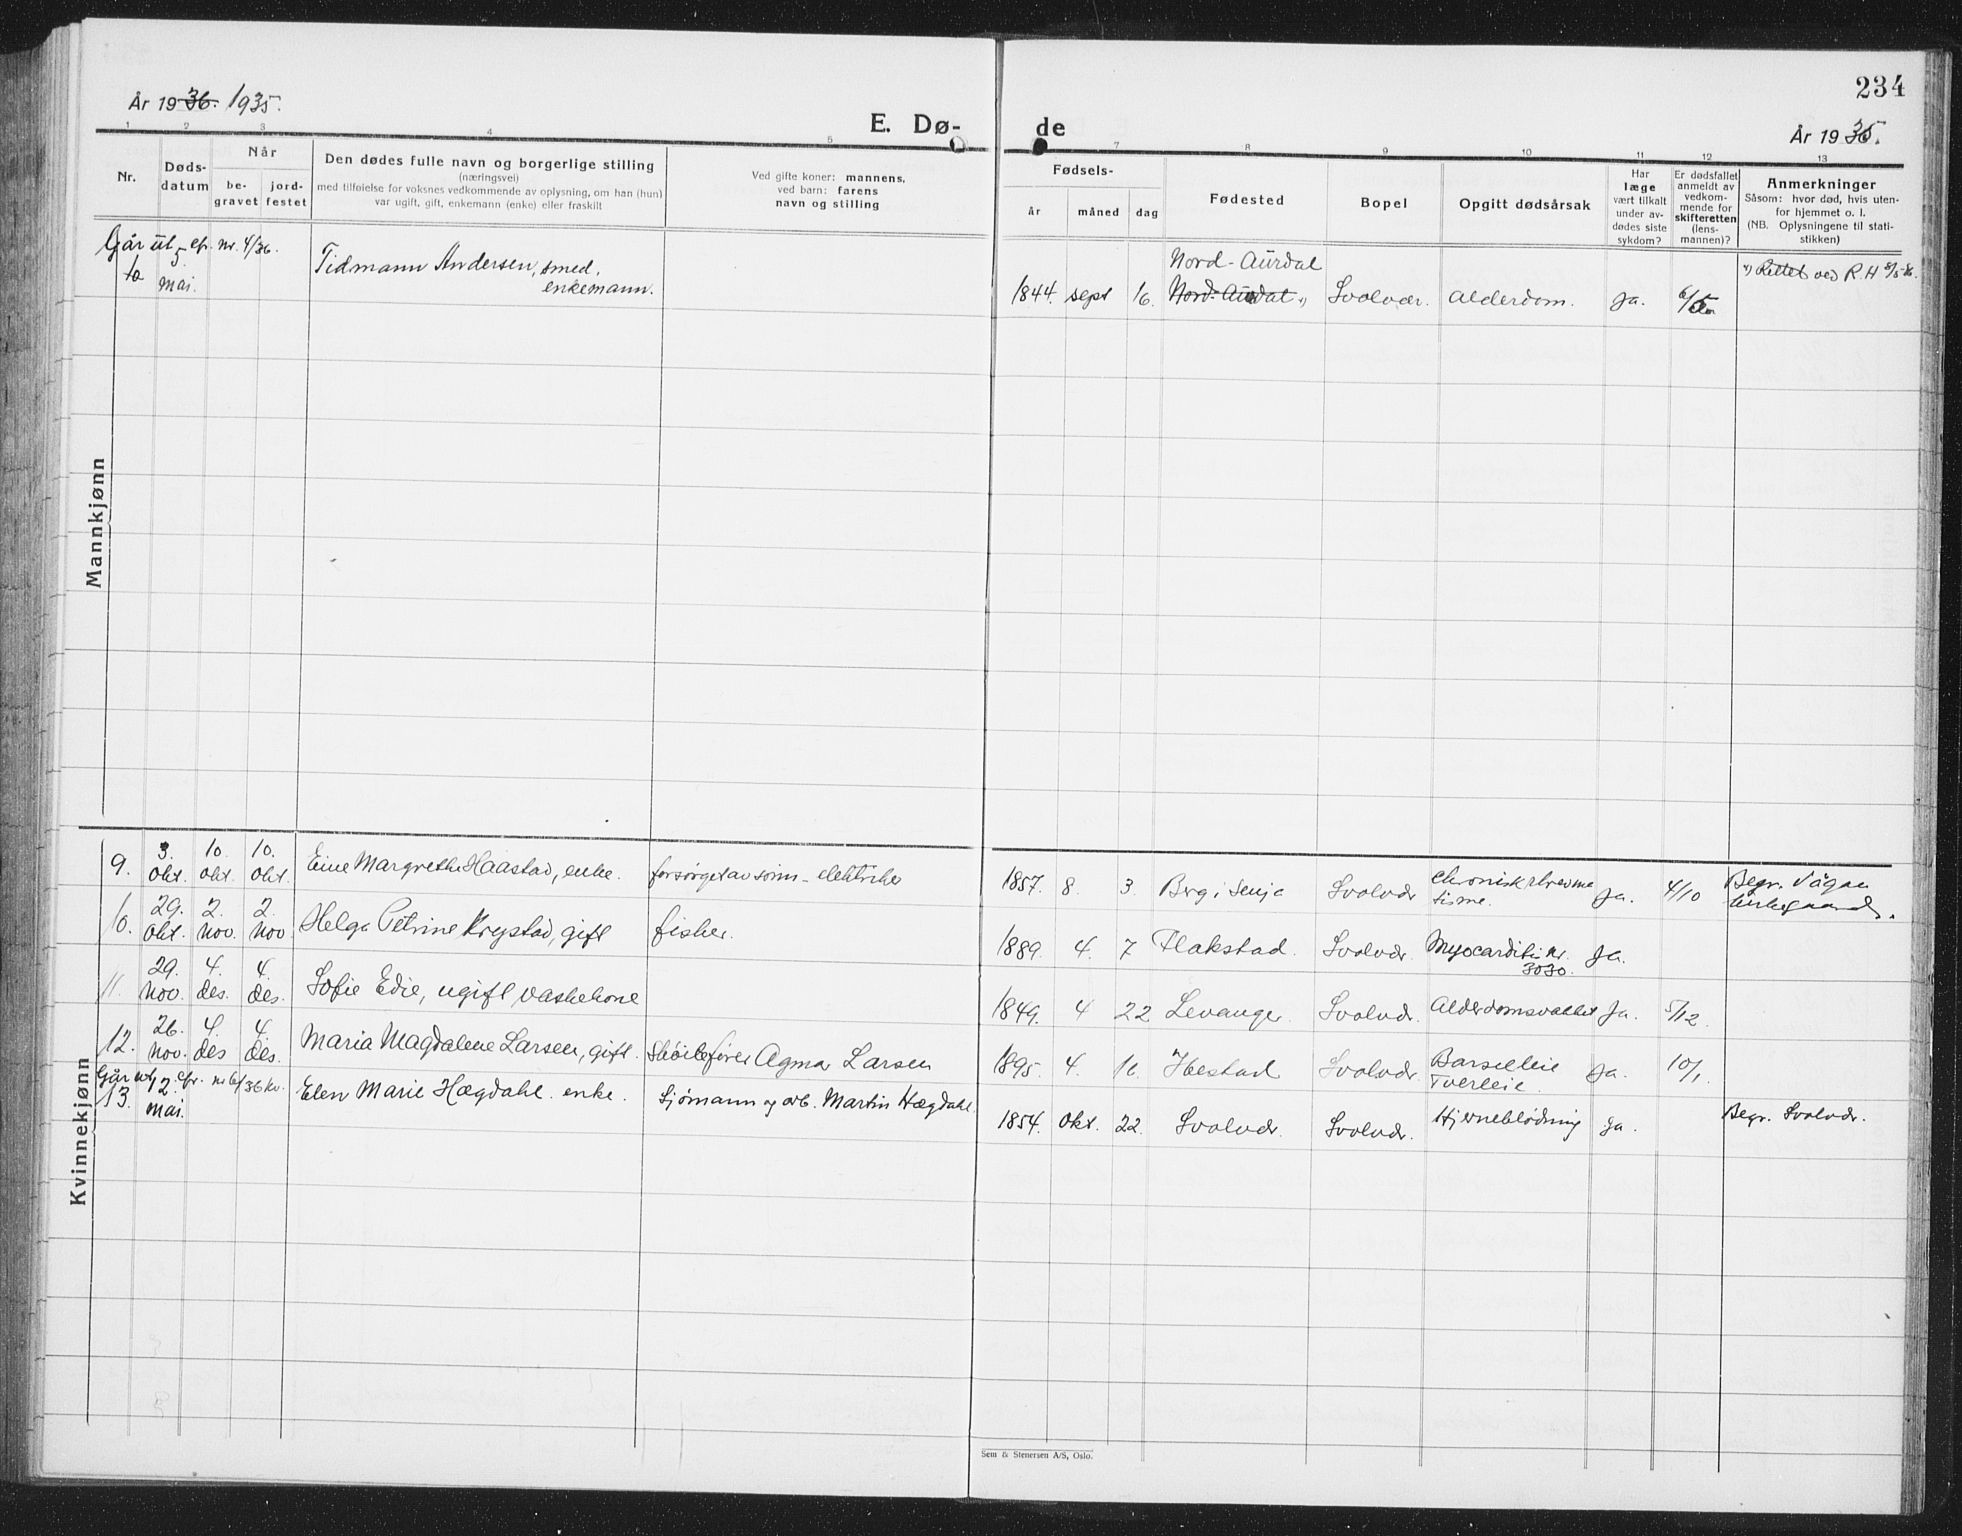 234
År 1936. 1935.
E. Dø-
de
År 1935.
1 2 3 4 5
7 8 9 10 11 12 13
Nr.
Døds-
datum
Når
be-
gravet
jord-
festet
Den dødes fulle navn og borgerlige stilling
(næringsvei)
med tilføielse for voksnes vedkommende av oplysning, om han (hun)
var ugift, gift, enkemann (enke) eller fraskilt
Ved gifte koner: mannens,
ved barn: farens
navn og stilling
Fødsels-
år måned dag
Fødested
Bopel
Opgitt dødsårsak
Har
læge
vært tilkalt
under av-
dødes siste
sykdom?
Er dødsfallet
anmeldt av
vedkom-
mende for
skifteretten
(lens-
mannen)?
Anmerkninger
Såsom: hvor død, hvis uten-
for hjemmet o. l.
(NB. Oplysningene til stati-
stikken)
Mannkjønn
Går ut cfr. nr. 4/36.
10 5. mai. Tidmann Andersen, smed,
enkemann.
Nord-Aurdal
1844. sept 16. Nord-Aurdal *) Svolvær. Alderdom. Ja. 6/5
*) Rettet ved R.H
Kvinnekjønn
9. 3. okt. 10. okt. 10. okt. Eine Margrethe Haastad, enke. forsørget av sønn - elektriker
1857. 8. 3. Berg i Senja Svolvær chronisk rhevma
tisme. Ja. 4/10 Begr. Vågan
kirkegaard.
10. 29. okt. 2. nov. 2. nov Helga Petrine Krystad, gift fisker.
1889. 4. 7 Flakstad. Svolvær. Myocarditi nr.
3030. Ja.
11. 29. nov. 4. des. 4. des. Sofie Edie, ugift vaskekone
1849. 4 22 Levanger. Svolvær. Alderdomsvakhet Ja. 5/12.
12. 26. nov. 4. des 4. des. Maria Magdalene Larsen, gift. Skøitefører Agmar Larsen
1895. 4. 16. Ibestad Svolvær. Barselleie
Tverleie. Ja. 10/1.
Går ut cfr. nr 6/36 kv.
13. 12. mai. Elen Marie Hægdahl. enke. Sjømann og arb. Martin Hægdahl.
1854. okt. 22. Svolvær. Svolvær. Hjerneblødning Ja. Begr. Svolvær.
Sem & Stenersen A/S, Oslo.